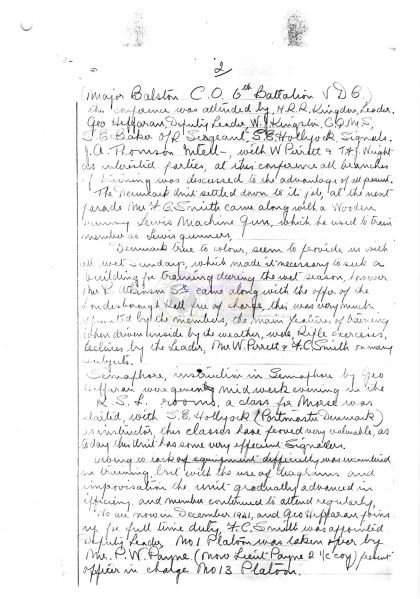 2
(Major Balston C.O. 6th Battalion V D C.)
this conference was attended by H.R.R. Kingdon, Leader.
Geo Hefferan, Deputy Leader, W.J. Kingston, C.Q.M.S,
S.E. Baker O/R Sergeant, S.E. Hollyock, Signals.
J.A. Thomson Intell-, with W Pirrett & T.H. Wright
as interested parties, at this conference all branches
of training was discussed to the advantage of all present.
The Denmark Unit settled down to its job, at the next
parade Mr H.C. Smith came along with a Wooden
Dummy Lewis Machine Gun, which he used to train
member as Lewis gunners
Denmark true to colour, seem to provide us with
all wet Sundays, which made it necessary to seek a
building for training during the wet season, however
Mr P. Atkinson Sr came along with the offer of the
Londesborough Hall free of charge, this was very much
by the members, the main features of training
when driven inside by the weather, were, Rifle exercises,
lectures, by the Leader, Mr W. Pirrett & H.C. Smith on many
subjects.
Semaphore, instruction in Semaphore by Geo
Hefferan were given mid week evening in the
R.S.L. rooms, a class for Morse was
started, with S.E. Hollyock (Postmaster Denmark)
as instructor, this classes have proved very valuable, as
today this Unit has some very effecient Signallers.
owing to lack of equipment difficulty was encountered
in training, but with the use of diagrams and
improvisation the unit gradually advanced in
efficiency, and member continued to attend regularly.
We are now in December 1941, and Geo Hefferan joins
up for full time duty, H.C. Smith was appointed
Deputy Leader No 1 Platoon was taken over by
Mr. P.W. Payne (now Lieut Payne 2 i/c coy) present
officer in charge No 13 Platoon.